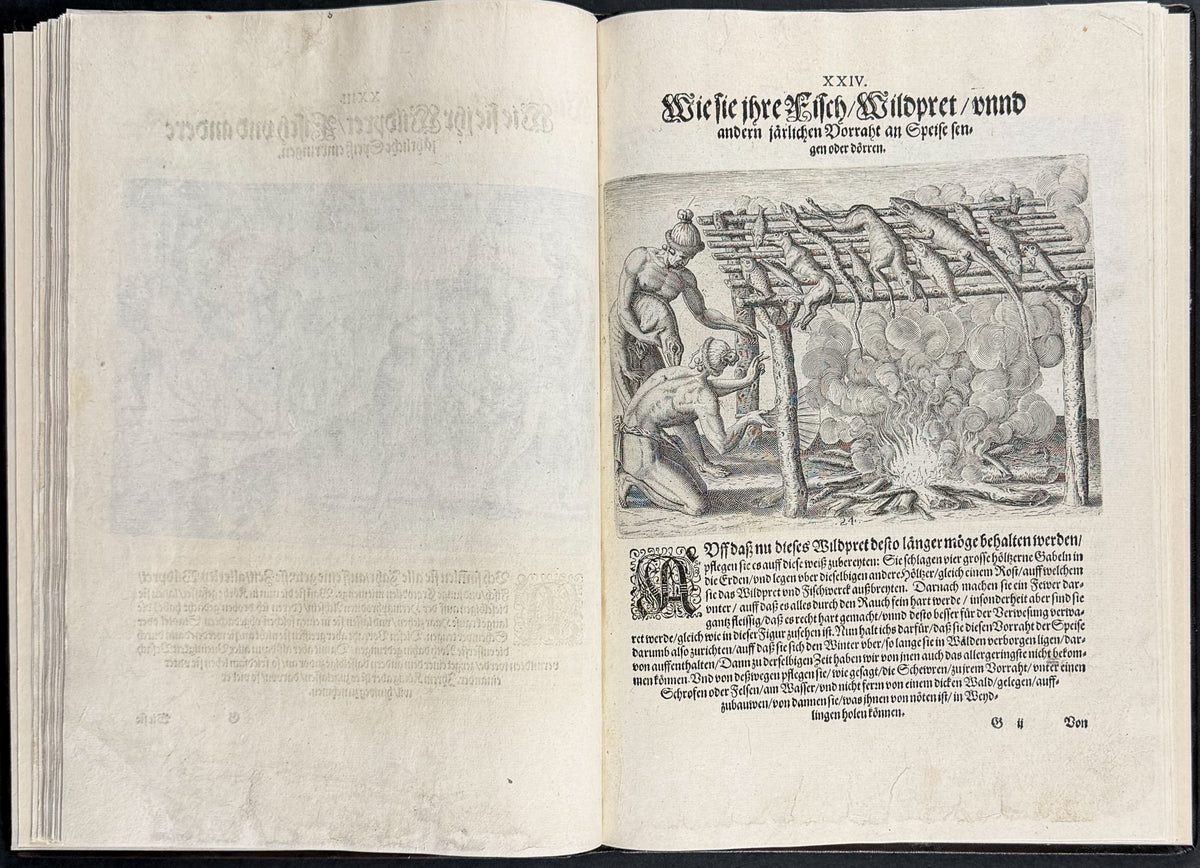 XXIV.
Wie sie jhre Fisch/Wildpret/vnnd
andern järlichen Vorraht an Speise sen-
gen oder dörren.
24.
AVff daß nu dieses Wildpret desto länger möge behalten werden/
pflegen sie es auff diese weiß zubereyten: Sie schlagen vier grosse höltzerne Gabeln in
die Erden/vnd legen vber dieselbigen andere Höltzer/gleich einem Rost/auff welchem
sie das Wildpret vnd Fischwerck außbreyten. Darnach machen sie ein Fewer dar-
vnter/auff daß es alles durch den Rauch fein hart werde/insonderheit aber sind sie
gantz fleissig/daß es recht hart gemacht/vnnd desto besser für der Verwesung verwa-
ret werde/gleich wie in dieser Figur zusehen ist. Nun halt ichs darfür/daß sie diesen Vorraht der Speise
darumb also zurichten/auff daß sie sich den Winter vber/so lange sie in Wälden verborgen ligen/dar-
von auffenthalten/Dann zu derselbigen Zeit haben wir von jnen auch das allergeringste nicht bekom-
men können. Vnd von deßwegen pflegen sie/wie gesagt/die Schewren/zu jrem Vorraht/vnter einen
Schrofen oder Felsen/am Wasser/vnd nicht fern von einem dicken Wald/gelegen/auff-
zubauwen/von dannen sie/was jhnen von nöten ist/in Weyd-
lingen holen können.
G ij Von